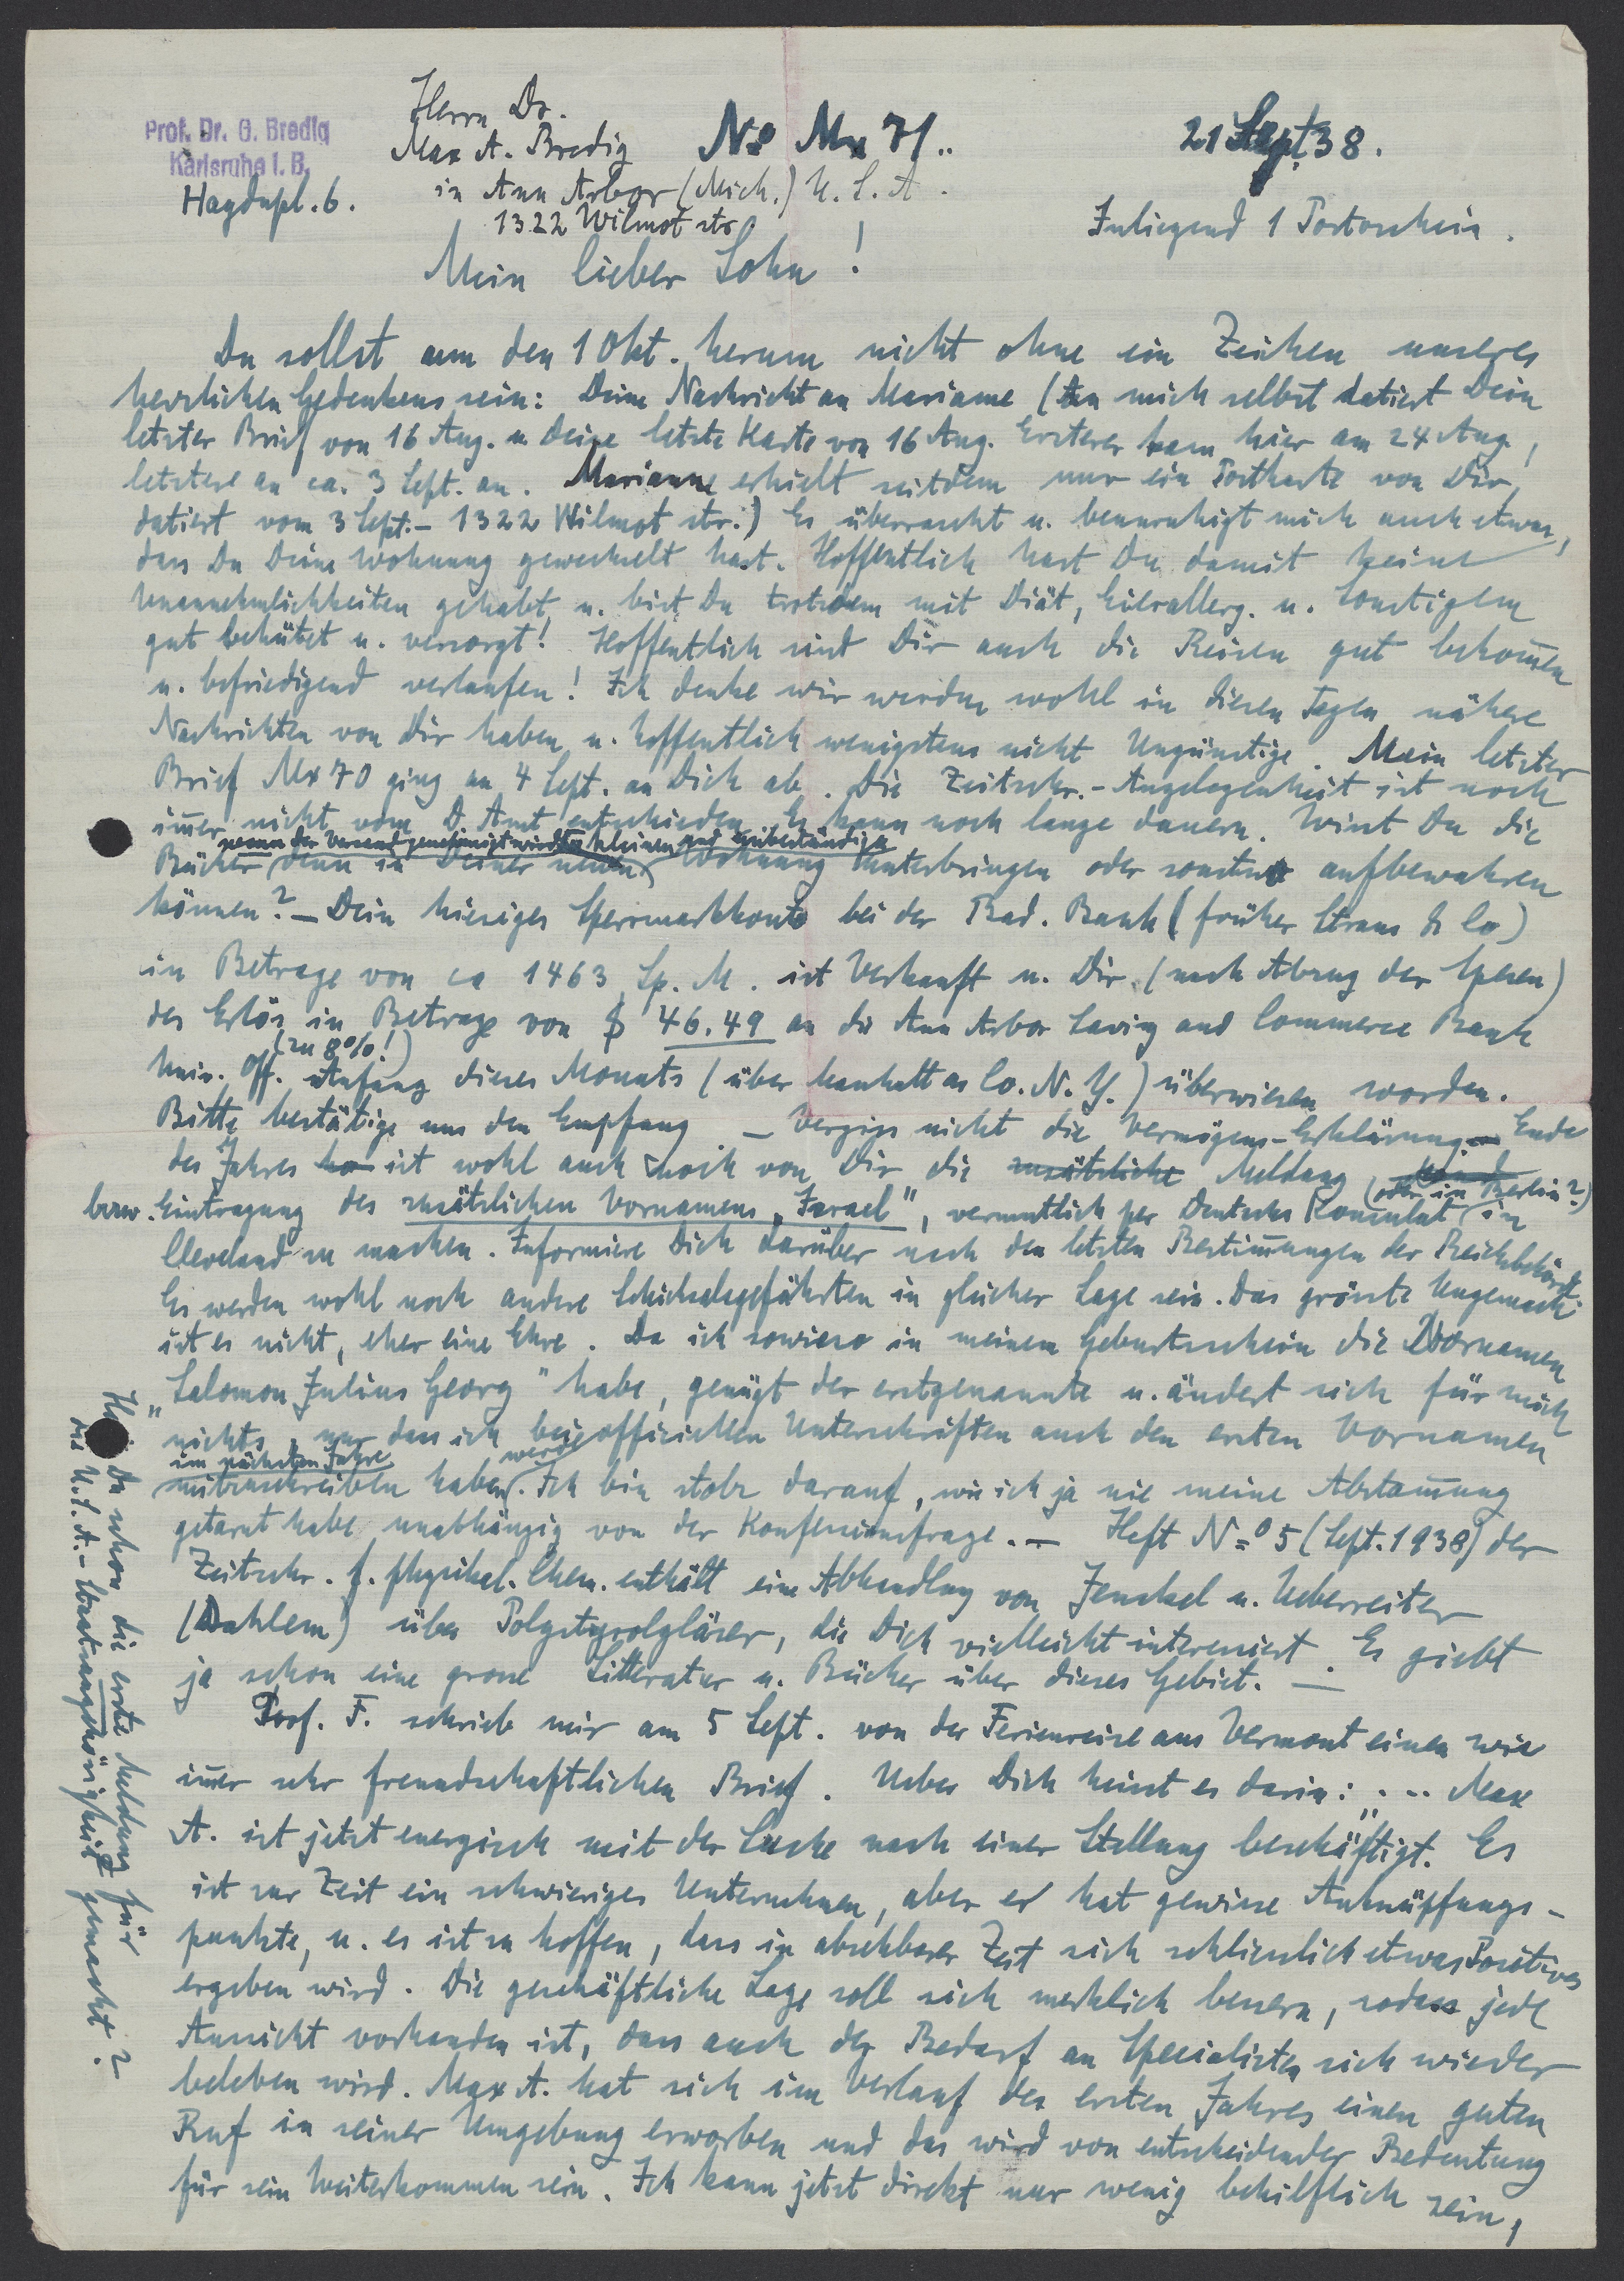 Prof. Dr. G. Bredig
Karlsruhe i. B.
Haydnpl. 6.
Herrn Dr.
Max A. Bredig
in Ann Arbor (Mich.) U. S. A.
1322 Wilmot str.
No Mx 71..
21 Sept 38.
Inliegend 1 Portoschein.
Mein lieber Sohn!
Du sollst um den 1 Okt. herum nicht ohne ein Zeichen unseres
herzlichen Gedenkens sein: Deine Nachricht an Marianne (An mich selbst datiert Dein
letzter Brief von 16 Aug. u. Deine letzte Karte von 16 Aug. Ersterer kam hier am 24 Aug.,
letztere an ca. 3 Sept. an. Marianne erhielt seitdem nur ein Postkarte von Dir,
datiert vom 3 Sept. – 1322 Wilmot str.) Es überrascht u. beunruhigt mich auch etwas,
dass Du Deine Wohnung gewechselt hast. Hoffentlich hast Du damit keine
Unannehmlichkeiten gehabt, u. bist Du trotzdem mit Diät, Eierallerg. u. Sonstigem
gut behütet u. versorgt! Hoffentlich sind Dir auch die Reisen gut bekom̄en
u. befriedigend verlaufen! Ich denke wir werden wohl in diesen Tagen nähere
Nachrichten von Dir haben u. hoffentlich wenigstens nicht Ungünstige. Mein letzter
Brief Mx 70 ging am 4 Sept. an Dich ab. Die Zeitschr.-Angelegenheit ist noch
im̄er nicht vom D. Amt entschieden. Es kann noch lange dauern. Wirst Du die
wenn der Versand genehmigt wird kleinen und
Bücher denn in Deiner neuen Wohnung unterbringen oder sonstwo aufbewahren
können? – Dein hiesiges Sperrmarkkonto bei der Bad. Bank (früher Straus & Co)
in Betrage von ca 1463 Sp. M. ist Verkauft u. Dir (nach Abzug der Spesen)
der Erlös in Betrage von $ 46.49 an die Ann Arbor Saving and Commerce Bank
(zu 8%!)
Univ. Off. Anfang dieses Monats (über Manhattan Co. N. Y.) überwiesen worden.
Bitte bestätige uns den Empfang. – Vergiss nicht die Vermögens-Erklärung. Ende
des Jahres ist wohl auch noch von Dir die zusätzliche Meldung
(oder in Berlin?)
bzw. Eintragung des zusätzlichen Vornamens „Israel“, vermutlich per Deutsches Konsulat in
Cleveland zu machen. Informiere Dich darüber nach den letzten Bestim̄ungen der Reichsbehörde
Es werden wohl noch andere Schicksalsgefährten in gleicher Lage sein. Das grösste Ungemach
ist es nicht, eher eine Ehre. Da ich sowieso in meinem Geburtsschein die Vornamen
„Salomon Julius Georg“ habe, genügt der erstgenannte u. ändert sich für mich
nichts, nur dass ich bei officiellen Unterschriften auch den ersten Vornamen
im nächsten Jahre werde
mitzuschreiben haben. Ich bin stolz darauf, wie ich ja nie meine Abstam̄ung
getarnt habe unabhängig von der Konfessionsfrage. – Heft No 5 (Sept. 1938) der
Zeitschr. f. physikal. Chem. enthält eine Abhandlung von Jenckel u. Ueberreiter
(Dahlem) über Polystyrolgläser, die Dich vielleicht interessiert. Es giebt
ja schon eine grosse Litteratur u. Bücher über dieses Gebiet. –
Prof. F. schrieb mir am 5 Sept. von der Ferienreise aus Vermont einen wie
im̄er sehr freundschaftlichen Brief. Ueber Dich heisst es darin: .... Max
A. ist jetzt energisch mit der Suche nach einer Stellung beschäftigt. Es
ist zur Zeit ein schwieriges Unternehmen, aber er hat gewisse Anknüpfungs-
punkte, u. es ist zu hoffen, dass in absehbarer Zeit sich schliesslich etwas Positives
ergeben wird. Die geschäftliche Lage soll sich merklich bessern, sodass jede
Aussicht vorhanden ist, dass auch der Bedarf an Specialisten sich wieder
beleben wird. Max A. hat sich im Verlauf des ersten Jahres einen guten
Ruf in seiner Umgebung erworben und das wird von entscheidender Bedeutung
für sein Weiterkommen sein. Ich kann jetzt direkt nur wenig behilflich sein,
Du schon die erste Meldung für
die U.S.A.-Staatsangehörigkeit gemacht?